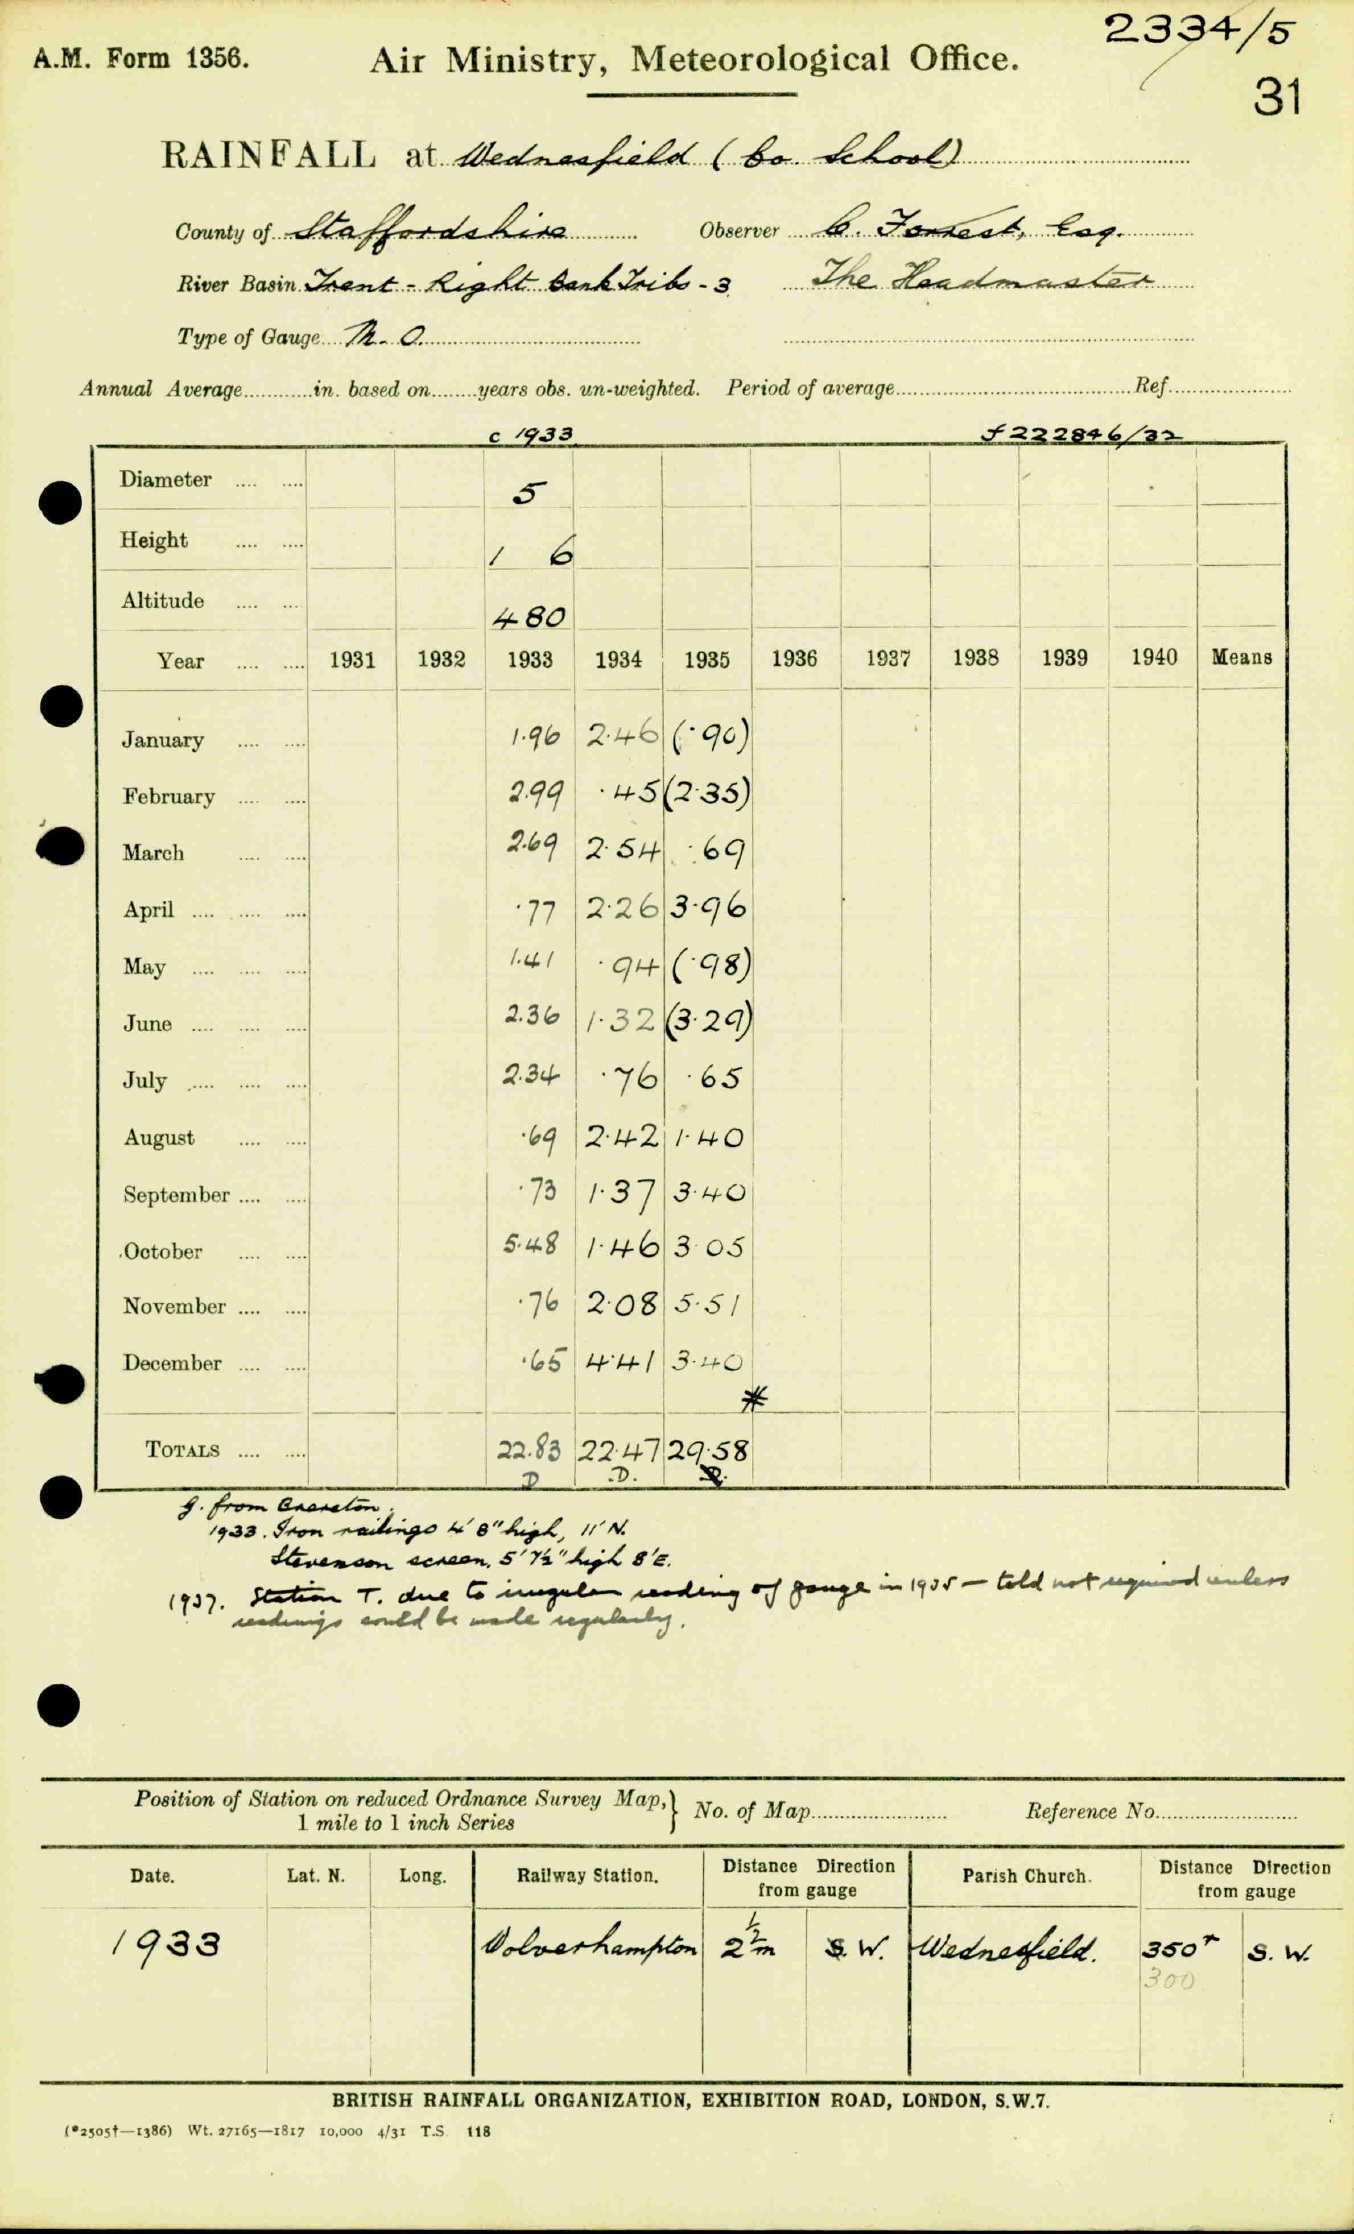 2334/5
A.M. Form 1356. Air Ministry, Meteorological Office.
31
RAINFALL at Wednesfield (Co. School)
County of Staffordshire Observer C. Forrest, Esq.
River Basin Trent - Right Bank Tribs - 3 The Headmaster
Type of Gauge M. O.
Annual Average in. based on years obs. un-weighted. Period of average Ref.
c 1933 f 222846/32
Diameter 5
Height 1 6
Altitude 480
Year 1931 1932 1933 1934 1935 1936 1937 1938 1939 1940 Means
January 1.96 2.46 (.90)
February 2.99 .45 (2.35)
March 2.69 2.54 .69
April .77 2.26 3.96
May 1.41 .94 (.98)
June 2.36 1.32 (3.29)
July 2.34 .76 .65
August .69 2.42 1.40
September .73 1.37 3.40
October 5.48 1.46 3.05
November .76 2.08 5.51
December .65 4.41 3.40
#
TOTALS 22.83 22.47 29.58
D D. D.
g. from
1933. Iron railings 4' 8" high, 11' N.
Stevenson screen, 5' 7½" high 8' E.
1937. Station T. due to irregular reading of gauge in 1935 — told not required unless
readings could be made regularly.
Position of Station on reduced Ordnance Survey Map, } No. of Map Reference No.
1 mile to 1 inch Series
Date. Lat. N. Long. Railway Station. Distance Direction from gauge Parish Church. Distance Direction from gauge
1933 Wolverhampton 2½ m S. W. Wednesfield. 350ˣ S. W.
300
BRITISH RAINFALL ORGANIZATION, EXHIBITION ROAD, LONDON, S.W.7.
(*2505†—1386) Wt. 27165—1817 10,000 4/31 T.S. 118